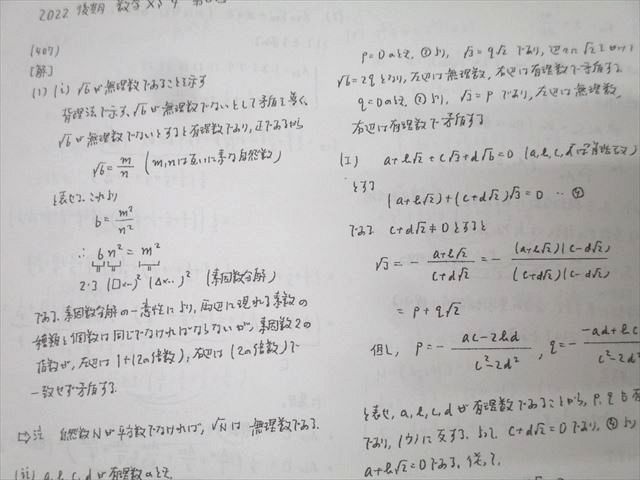 2022 後期 数学XS
(407)
[解]
(1) (i) √6が無理数であることを示す
背理法で示す。√6が無理数でないとして矛盾を導く。
√6が無理数でないとすると有理数であり、正であるから
√6 = m/n (m, nは互いに素な自然数)
と表せて、これより
6 = m²/n²
∴ 6n² = m²
2・3 (□×‥)² (△×‥)² (素因数分解)
である。素因数分解の一意性により、両辺に現れる素数の
種類と個数は同じでなければならないが、素因数2の
個数が、左辺は1+(2の倍数)、右辺は(2の倍数)で
一致せず矛盾する。
⇨注 自然数Nが平方数でなければ、√Nは無理数である。
(ii) a, b, c, dが有理数のとき
p=0のとき、より √3=q√2 であり、辺々に√2をかけて
√6=2qとなり、左辺は無理数、右辺は有理数で矛盾する
q=0のとき、より、√3=p であり、左辺は無理数、
右辺は有理数で矛盾する
(エ) a+b√2+c√3+d√6=0 (a, b, c, dは有理数)
とする
(a+b√2)+(c+d√2)√3=0 ‥④
である c+d√2≠0とすると
√3 = - (a+b√2)/(c+d√2) = - (a+b√2)(c-d√2)/(c+d√2)(c-d√2)
= p+q√2
但し、p=- (ac-2bd)/(c²-2d²), q=- (-ad+bc)/(c²-2d²)
と表せ、a, b, c, dが有理数であることから、p, qも有
であり、(ウ)に反する。よって c+d√2=0であり、④より
a+b√2=0である。従って、